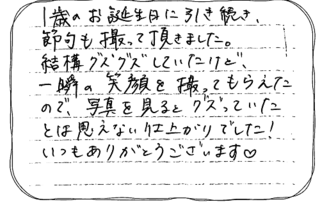 1歳のお誕生日に引き続き、
節句も撮って頂きました。
結構グズグズしていたけど、
一瞬の笑顔を撮ってもらえた
ので、写真を見るとグズっていた
とは思えない仕上がりでした!
いつもありがとうございます♡